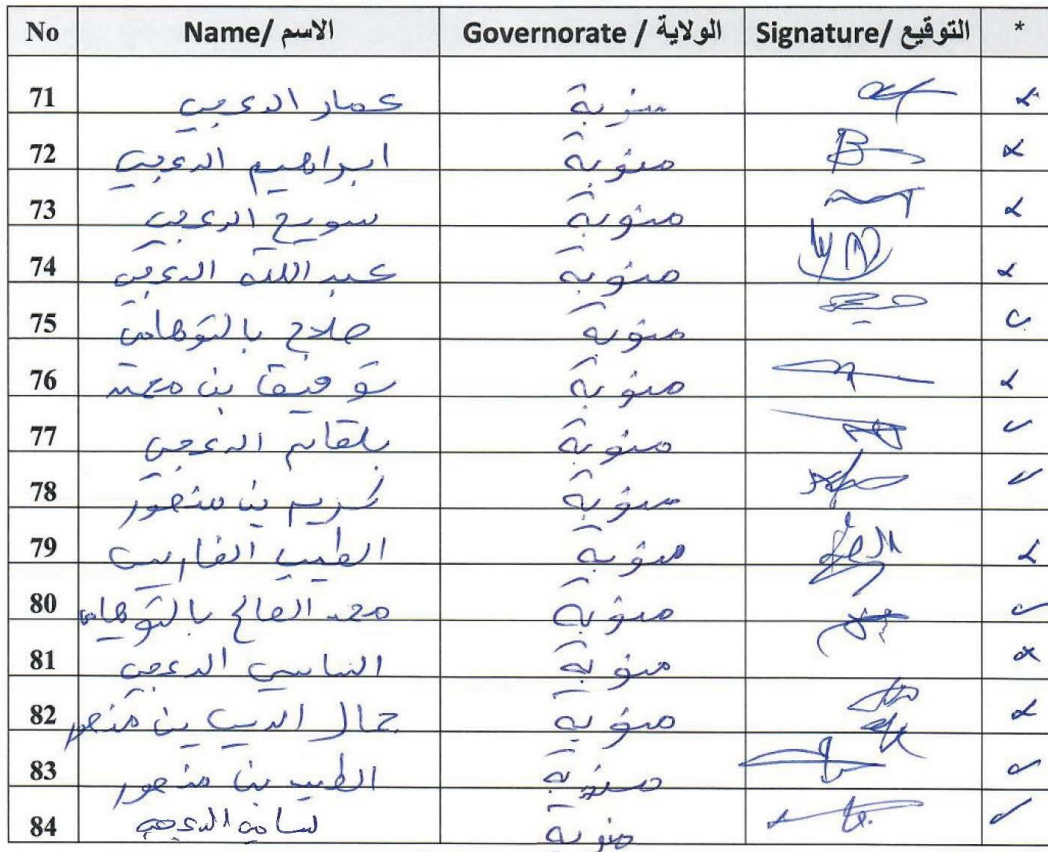 No الاسم /Name الولاية / Governorate التوقيع /Signature *
71 عمار الدعجي منوبة
72 ابراهيم الدعجي منوبة
73 سويح الدعجي منوبة
74 عبد الله الدعجي منوبة
75 صلاح بالتوهامي منوبة
76 توفيق بن محمد منوبة
77 بلقاسم الدعجي منوبة
78 كريم بن منصور منوبة
79 الطيب منوبة
80 محمد الصالح بالتوهامي منوبة
81 الدعجي منوبة
82 جمال الدين بن منصور منوبة
83 الطيب بن منصور منوبة
84 الدعجي منوبة